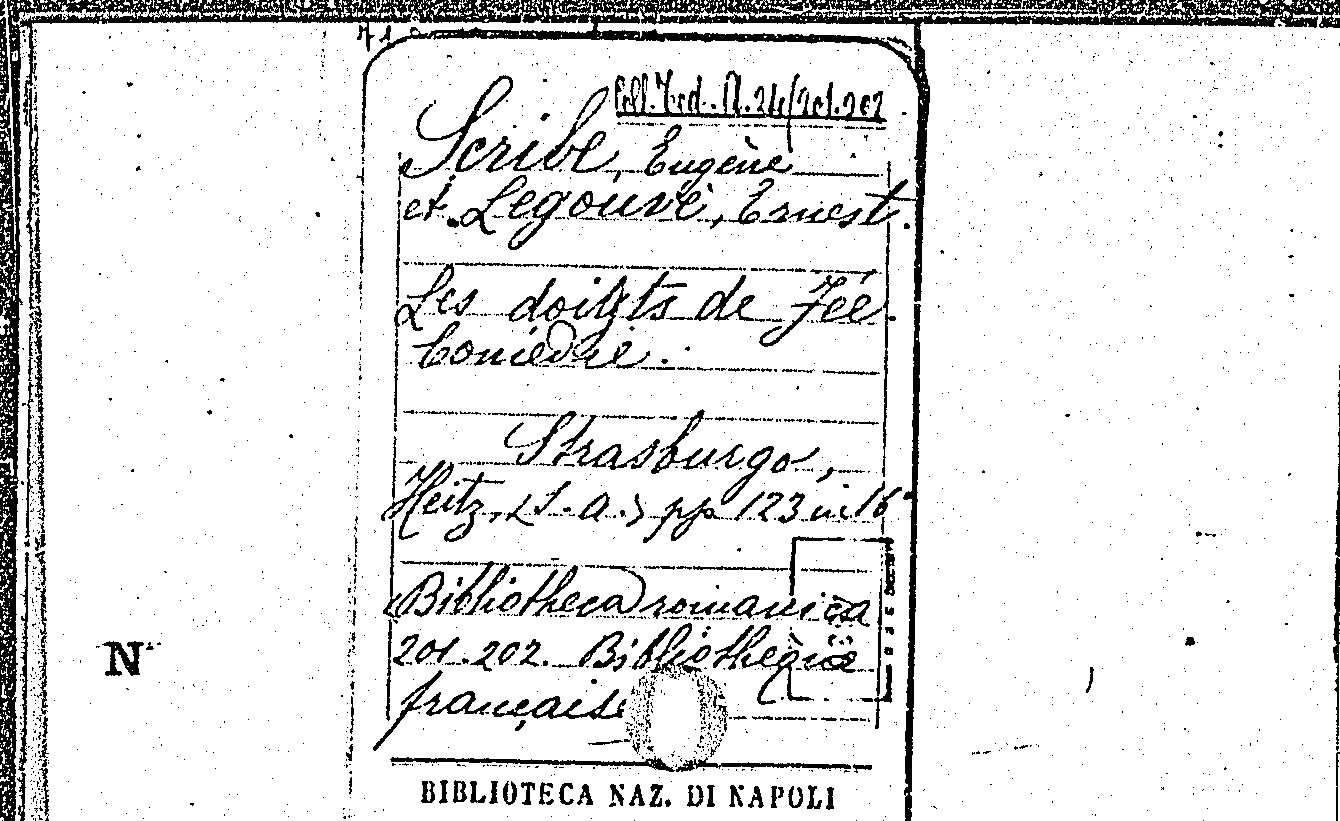 Coll. Ted. A. 24/201.202
Scribe, Eugène
et Legouvé, Ernest.
Les doigts de Fée.
Comédie.
Strasburgo,
Heitz, <S. a.> pp 123 in 16°
Bibliotheca romanica
201.202. Bibliothèque
française
N
BIBLIOTECA NAZ. DI NAPOLI